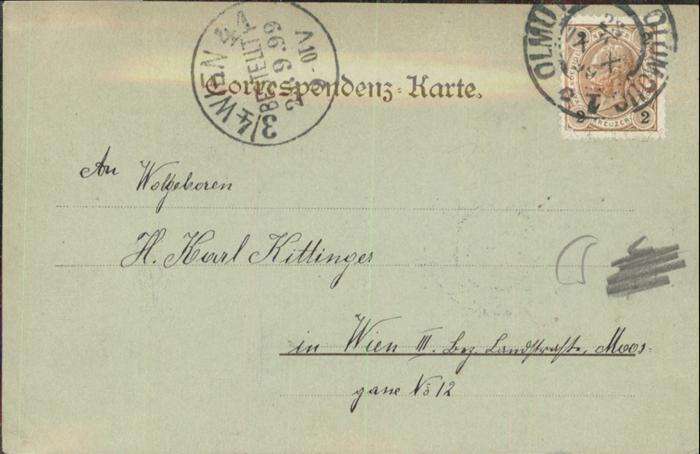 3/4 WIEN 41
BESTELLT
9.99
V 10-
OLMÜ
OLOMOUC
2 KREUZER 2
Correspondenz-Karte.
An Wolgeboren
H. Karl Kittinger
in Wien III. Bez. Landstraße, Moos-
gasse No 12